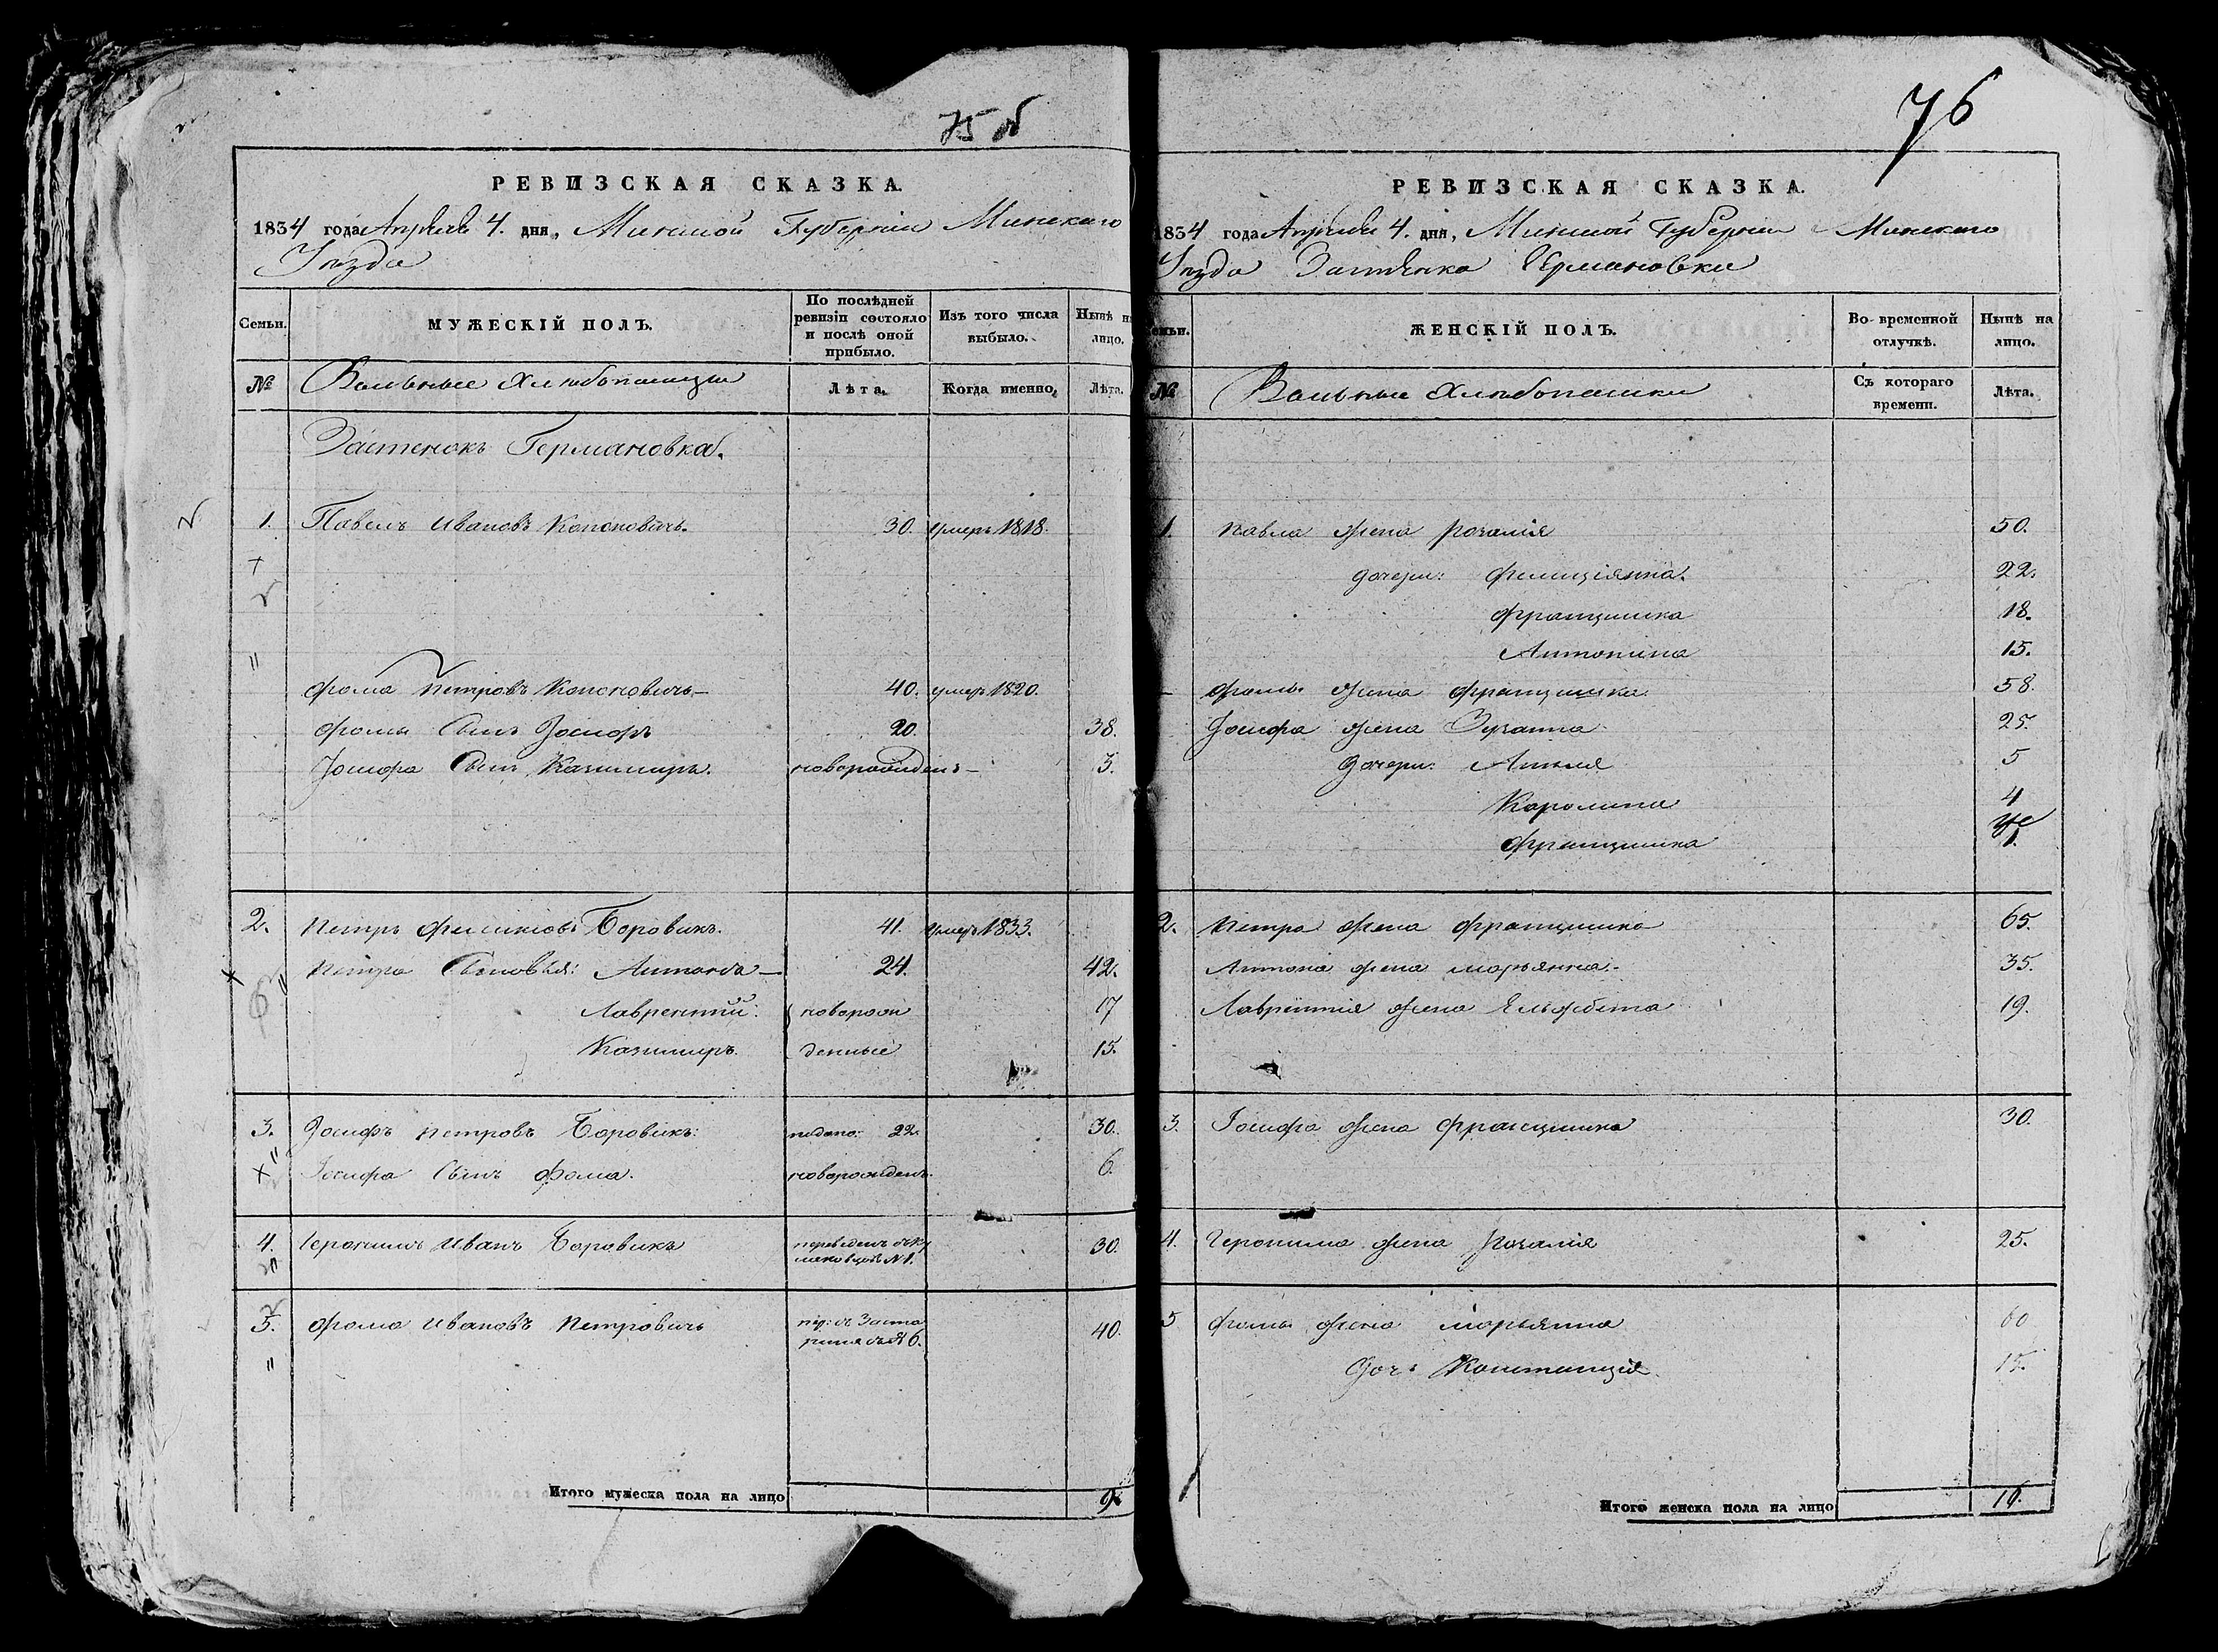 75 об
РЕВИЗСКАЯ СКАЗКА.
1834 года Апреля 4. дня, Минской Губерніи Минскаго
Уѣзда
Семьи.
МУЖЕСКІЙ ПОЛЪ.
По послѣдней ревизіи состояло и послѣ оной прибыло.
Изъ того числа выбыло.
Нынѣ на лицо.
№ Вольные Хлѣбопашцы Лѣта. Когда именно, Лѣта.
Застенокъ Германовка.
1. Павелъ Ивановъ Кононовичъ. 30. умеръ 1818.
Фома Петровъ Кононовичъ 40. умеръ 1820.
Фомы Сынъ Іосифъ 20. 38.
Іосифа Сынъ Казимиръ. новорожденъ 3.
2. Петръ Боровикъ. 41. умеръ 1833.
Петра Сыновья: Антоній 24. 42.
Лаврентій новорож 17
Казимиръ. денные 15.
3. Іосифъ Петровъ Боровикъ: 22. 30.
Іосифа Сынъ Фома. новорожденъ. 6.
4. Иеронимъ Иванъ Боровикъ переведенъ №1. 30.
5. Фома Ивановъ Петровичъ 40.
Итого мужеска пола на лицо 9
76
РЕВИЗСКАЯ СКАЗКА.
1834 года Апреля 4. дня, Минской Губерніи Минскаго
Уѣзда Застѣнка Германовки
Семьи.
ЖЕНСКІЙ ПОЛЪ.
Во временной отлучкѣ.
Нынѣ на лицо.
№ Вольные Хлѣбопашки Съ котораго времени. Лѣта.
1. Павла жена Розалія 50.
дочери: Фелиціянна. 22.
Францишка 18.
Антонина 15.
Фомы жена Францишка 58.
Іосифа жена Зузанна 25.
дочери: Анеля 5
Каролина 4
Францишка
2. Петра жена Францишка 65.
Антонія жена Марьянна. 35.
Лаврентія жена Ельжбета 19.
3. Іосифа жена Францишка 30.
4. Геронима жена Розалія 25.
5 Фомы жена Марьянна 60
Дочь Констанція. 15.
Итого женска пола на лицо 16.